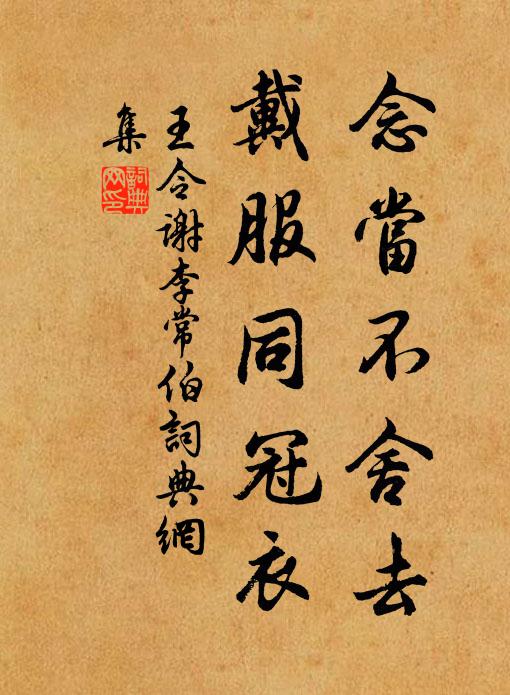 念當不舍去
戴服同冠衣
王令謝李常伯詞典網
集
詞典
網印